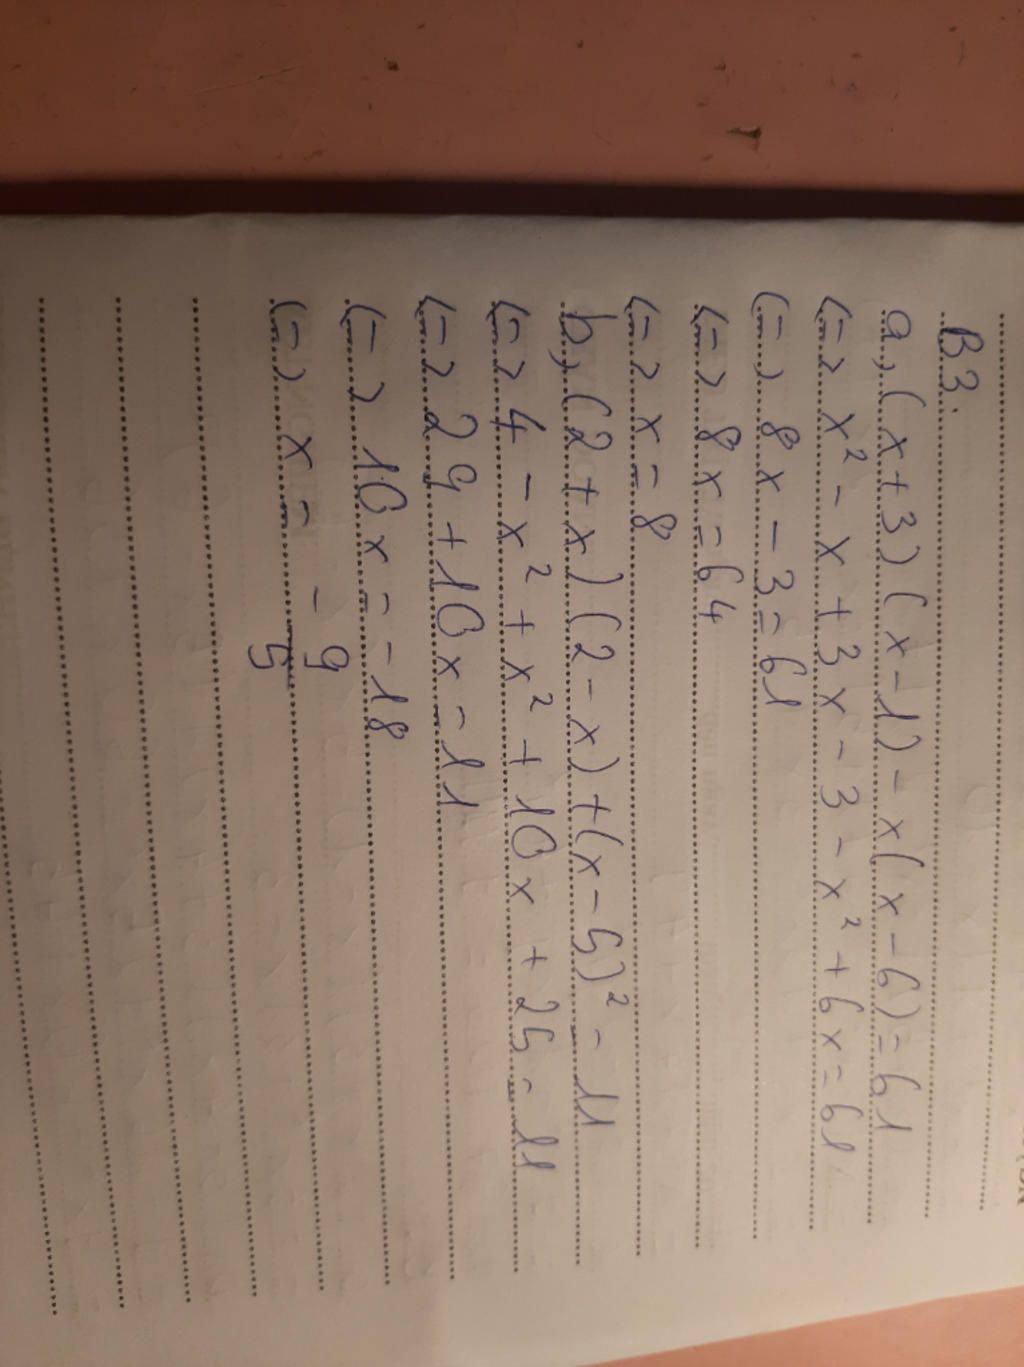 B3.
a, (x+3)(x-1)-x(x-6)=61
<=> x² - x + 3x - 3 - x² + 6x = 61
<=> 8x - 3 = 61
<=> 8x = 64
<=> x = 8
b, (2+x)(2-x)+(x-5)² = 11
<=> 4 - x² + x² + 10x + 25 = 11
<=> 29 + 10x = 11
<=> 10x = -18
<=> x = -9/5